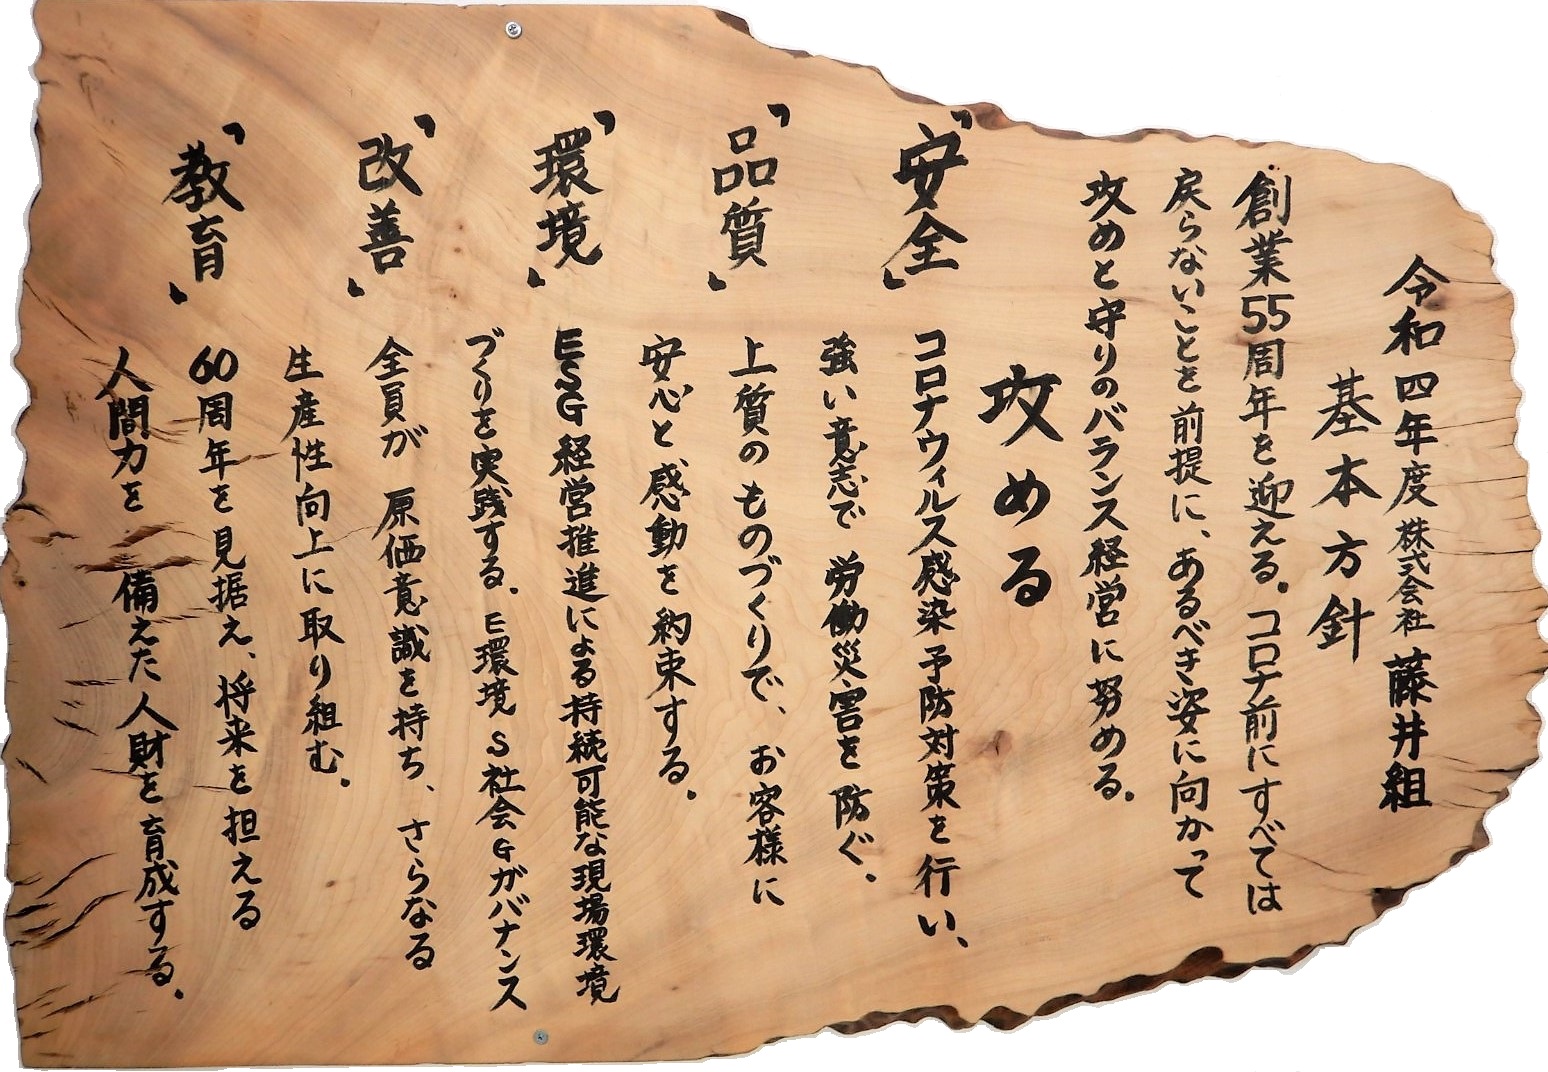 令和四年度 株式会社 藤井組
基本方針
創業55周年を迎える。コロナ前にすべては
戻らないことを前提に、あるべき姿に向かって
攻めと守りのバランス経営に努める。
攻める
「安全」
コロナウィルス感染予防対策を行い、
強い意志で労働災害を防ぐ。
「品質」
上質のものづくりで、お客様に
安心と感動を約束する。
「環境」
ESG経営推進による持続可能な現場環境
づくりを実践する。E環境S社会Gガバナンス
「改善」
全員が原価意識を持ち、さらなる
生産性向上に取り組む。
「教育」
60周年を見据え、将来を担える
人間力を備えた人財を育成する。